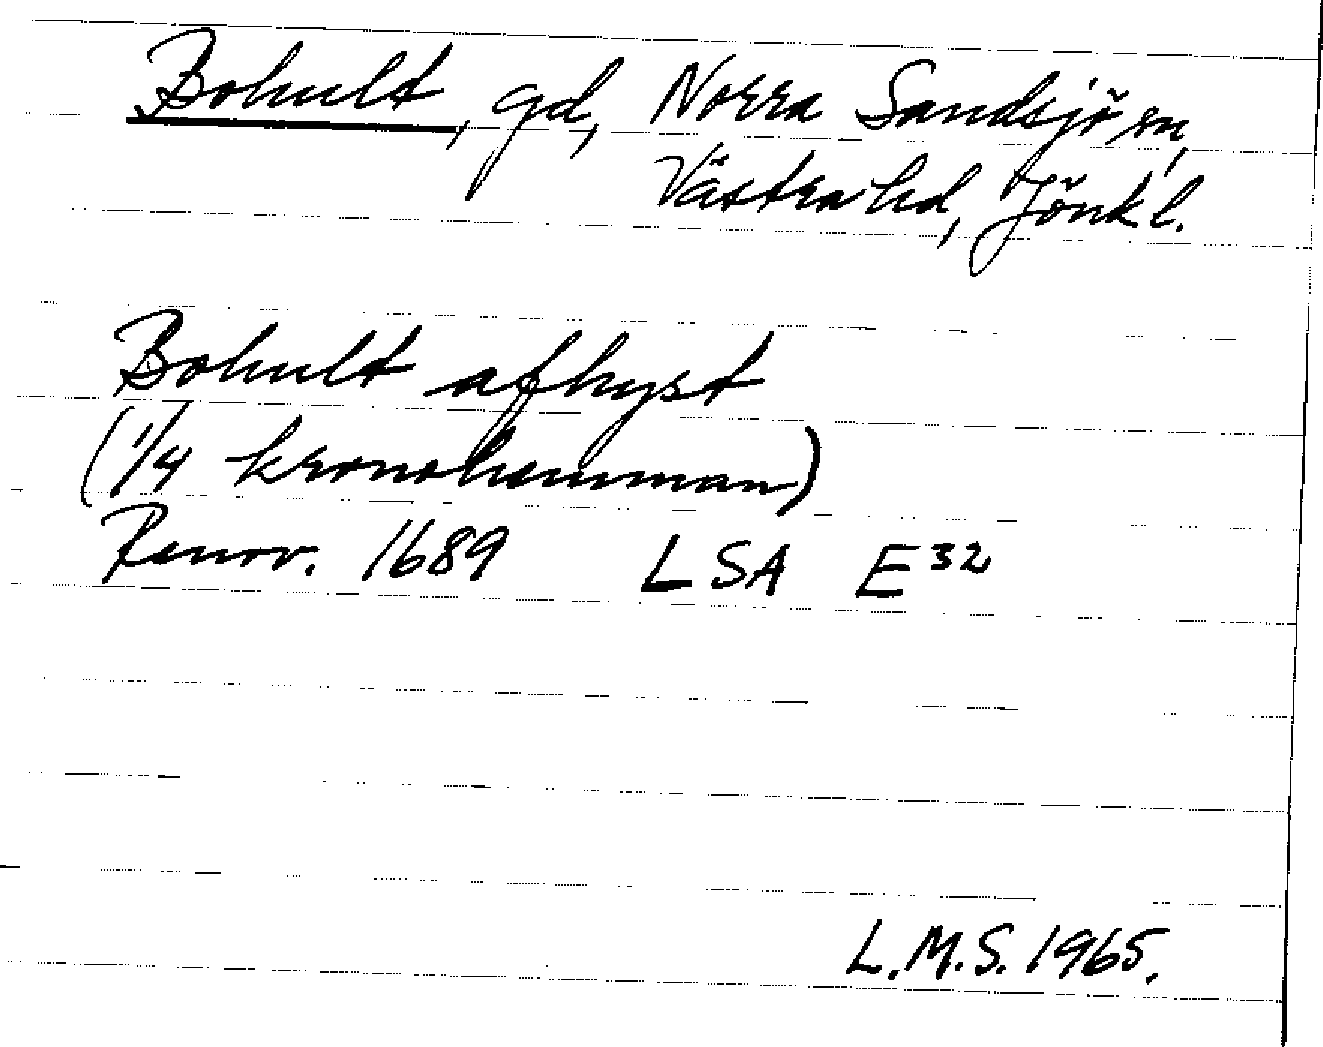 Bohult, gd, Norra Sandsjö sn,
Västra hd, Jönk l.
Bohult afhyst
(1/4 kronohemman)
Renov. 1689 LSA E32
L.M.S. 1965.